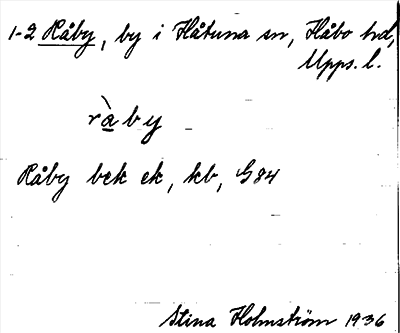 1-2 Råby, by i Håtuna sn, Håbo hd,
Upps. l.
ràby
Råby bek ek, kb, G84
Stina Holmström 1936